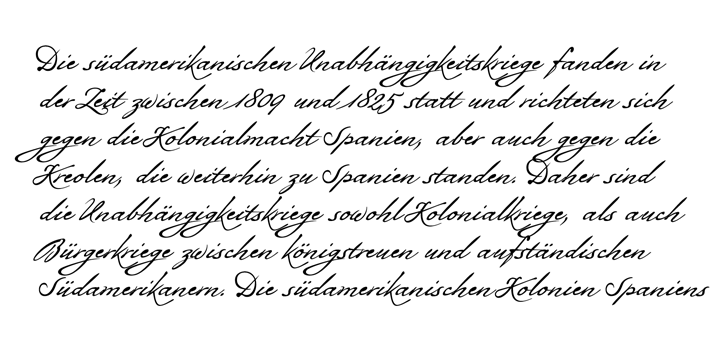 Die südamerikanischen Unabhängigkeitskriege fanden in
der Zeit zwischen 1809 und 1825 statt und richteten sich
gegen die Kolonialmacht Spanien, aber auch gegen die
Kreolen, die weiterhin zu Spanien standen. Daher sind
die Unabhängigkeitskriege sowohl Kolonialkriege, als auch
Bürgerkriege zwischen königstreuen und aufständischen
Südamerikanern. Die südamerikanischen Kolonien Spaniens